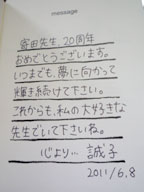 message
寄田先生、20周年
おめでとうございます。
いつまでも、夢に向かって
輝き続けて下さい。
これからも、私の大好きな
先生でいて下さいね。
心より… 誠子
2011/6.8